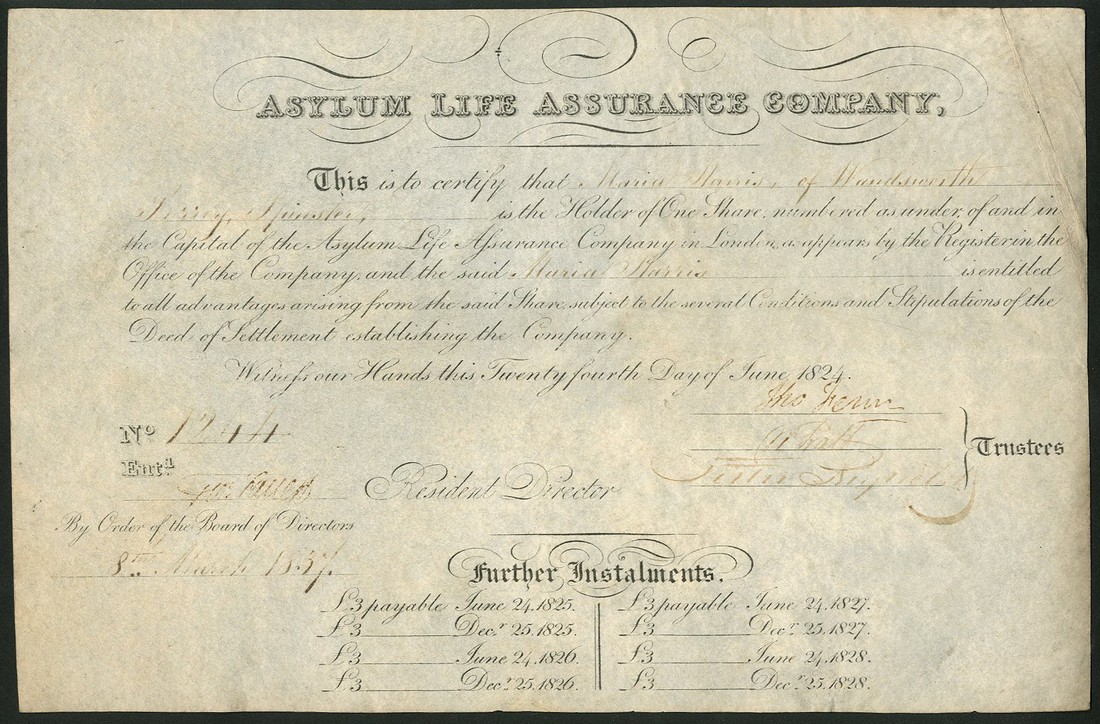 ASYLUM LIFE ASSURANCE COMPANY,
This is to certify that Maria Harris of Wandsworth
Surrey, Spinster, is the Holder of One Share, numbered as under, of and in
the Capital of the Asylum Life Assurance Company in London, as appears by the Register in the
Office of the Company, and the said Maria Harris is entitled
to all advantages arising from the said Share, subject to the several Conditions and Stipulations of the
Deed of Settlement establishing the Company.
Witness our Hands this Twenty fourth Day of June, 1824.
Tho Fenn
No 1244
Trustees
Entd
Resident Director
By Order of the Board of Directors
8th March 1837.
Further Instalments.
£3 payable June 24, 1825. £3 payable June 24, 1827.
£3 Decr 25, 1825. £3 Decr 25, 1827.
£3 June 24, 1826. £3 June 24, 1828.
£3 Decr 25, 1826. £3 Decr 25, 1828.